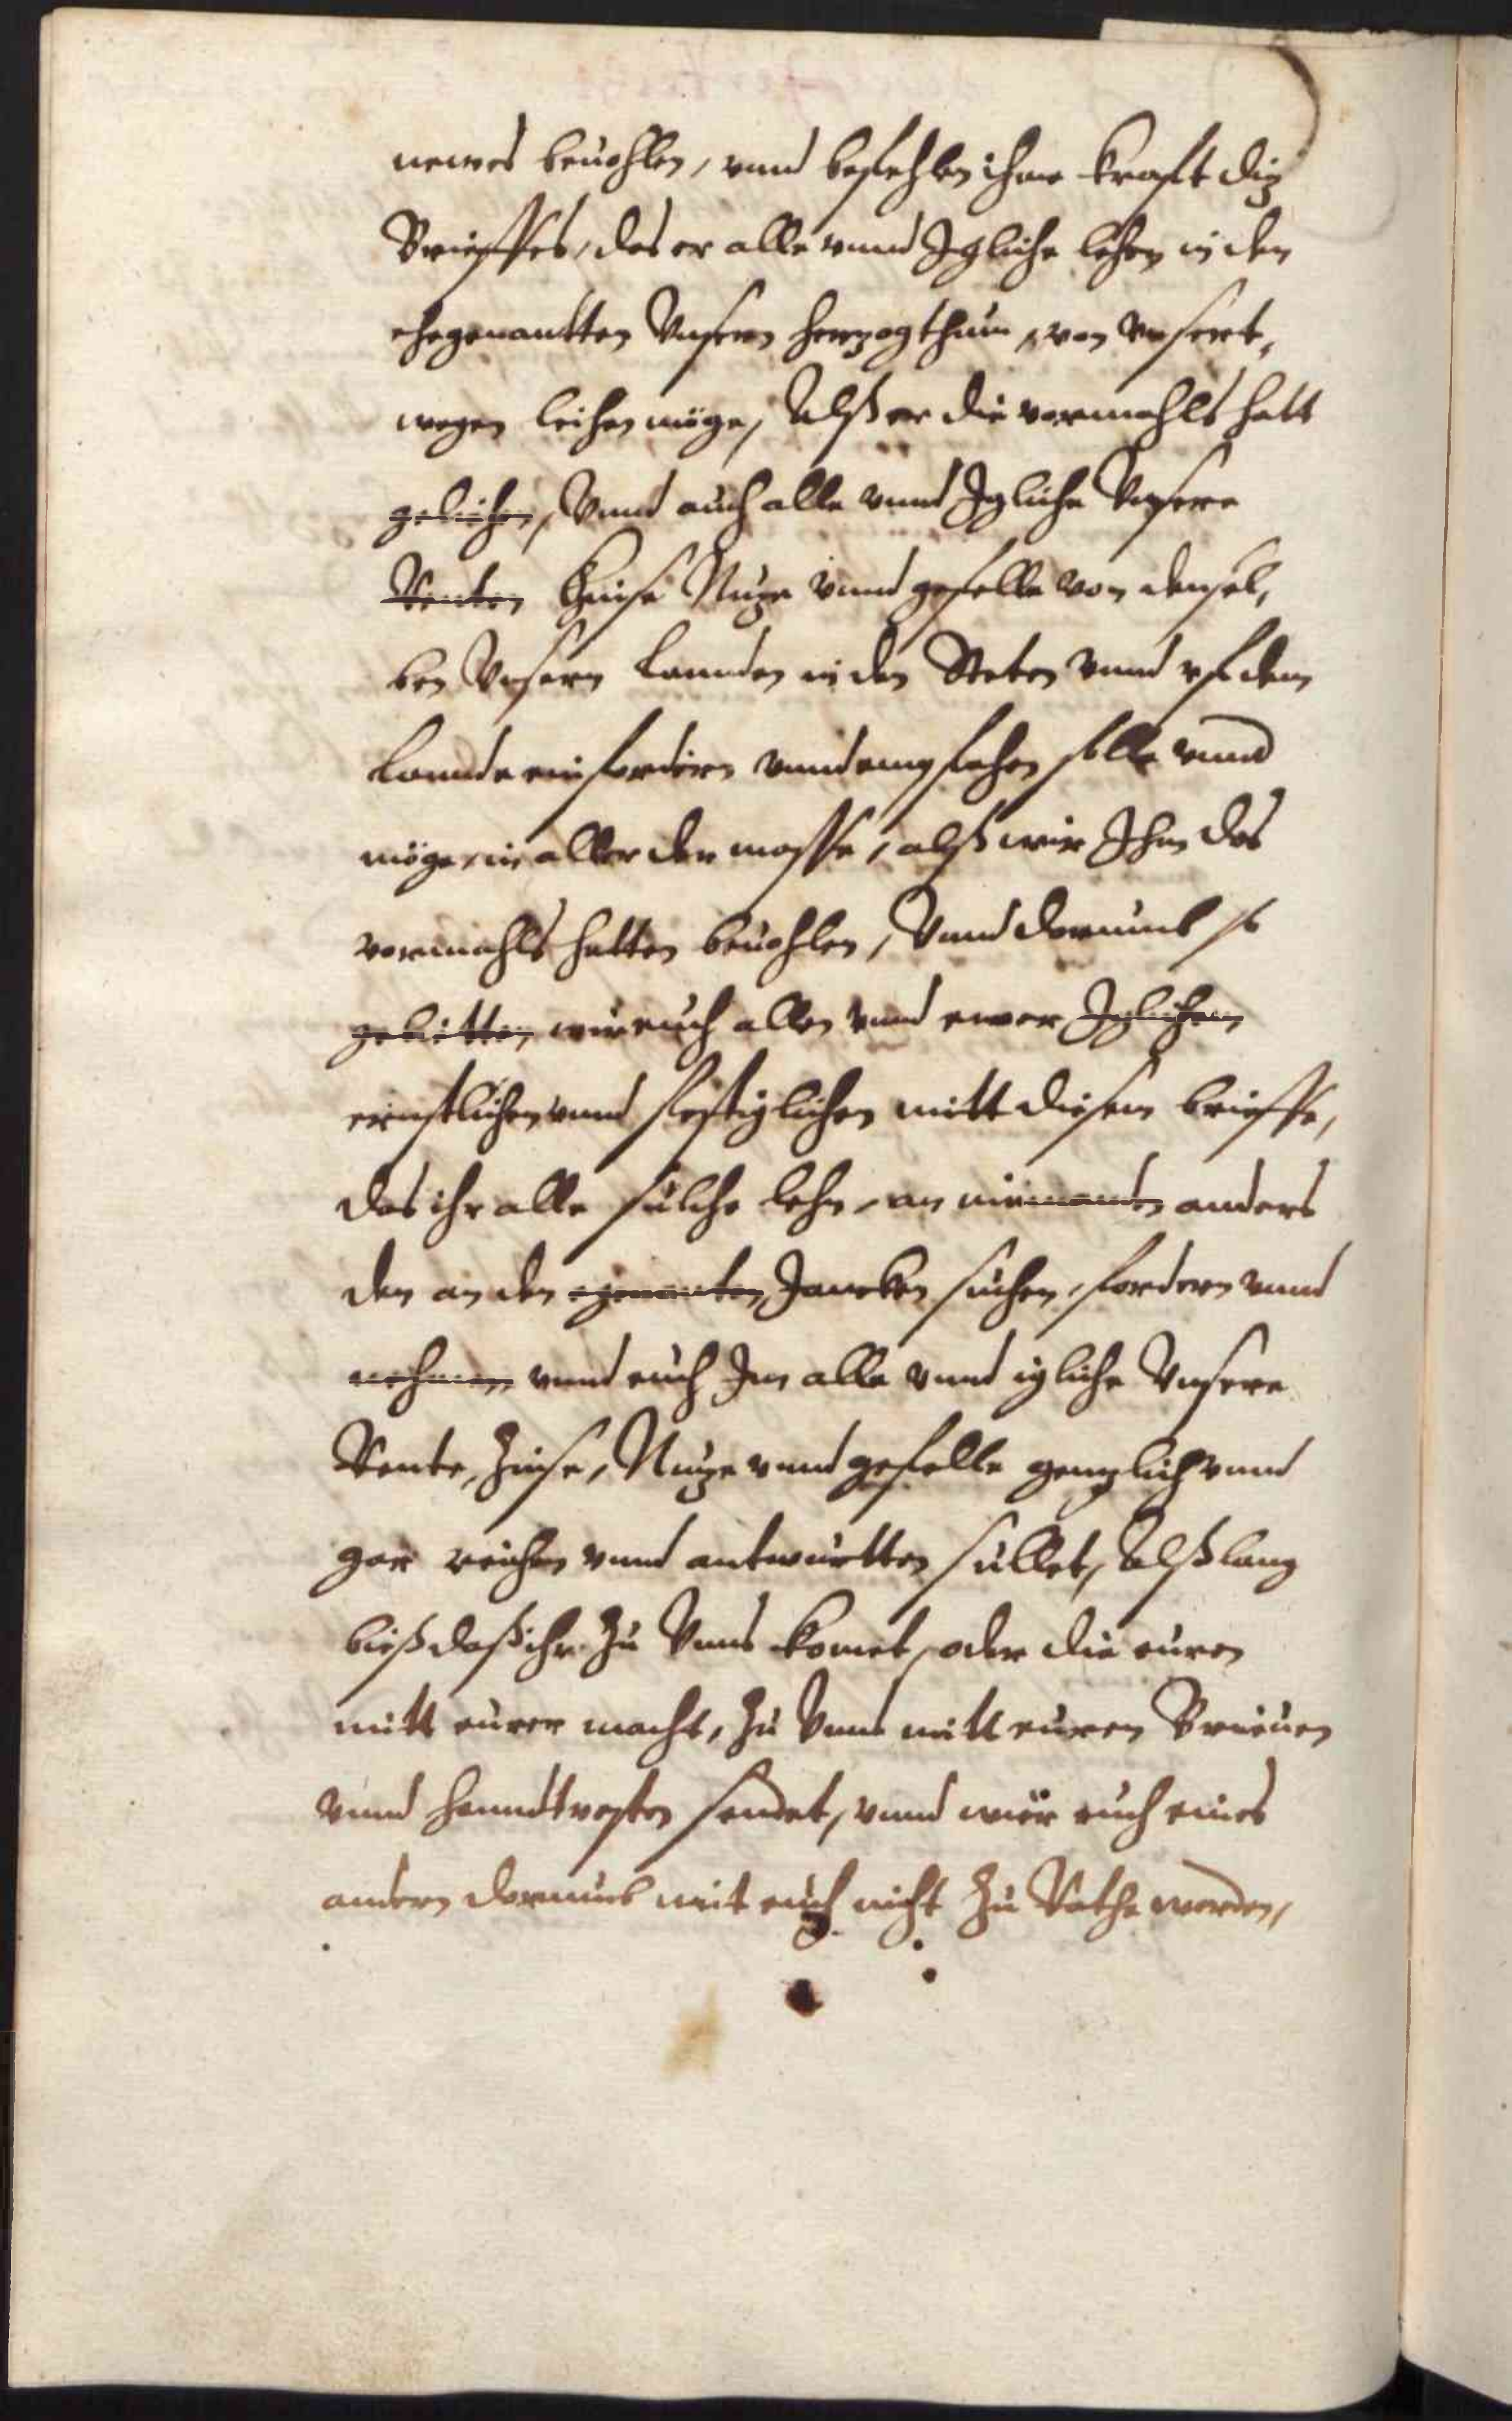 newes beuohlen, vnnd befehlen ihme krafft diz
Brieffes, das er alle vnnd Igliche lehen in den
ehegenantten Vnsern herzogthum, von vnsert,
wegen leihen müge, Alß er die vormahls hatt
geliehen, Vnnd auch alle vnnd Igliche Vnsere
Renten Zinse Nuze vnnd gefelle von densel,
ben Vnsern Lannden in den Steten vnnd vf dem
Lannde einfordern vnnd empfahen solle vnnd
möge, in aller der masse, alß wir Ihm das
vormahls hatten beuohlen, Vnnd darumb so
gebietten wir euch allen vnnd ewer Iglichem
ernstlichen vnnd festiglichen mitt diesem brieffe,
das ihr alle sulche lehn, an niemanden anders
den an den egenanten Jancken suchen, fordern vnnd
nehmen vnnd auch Im alle vnnd igliche Vnsere
Rente, Zinse, Nuze vnnd gefelle genzlich vnnd
gar reichen vnnd antwurtten sullet, Alß lang
bieß daß ihr zu Vnns komet, oder die euren
mitt eurer macht, zu Vnns mitt euren Brieuen
vnnd hanndtvesten sendet, vnnd wir euch eines
andern darumb mit euch nicht zu Rathe werden,